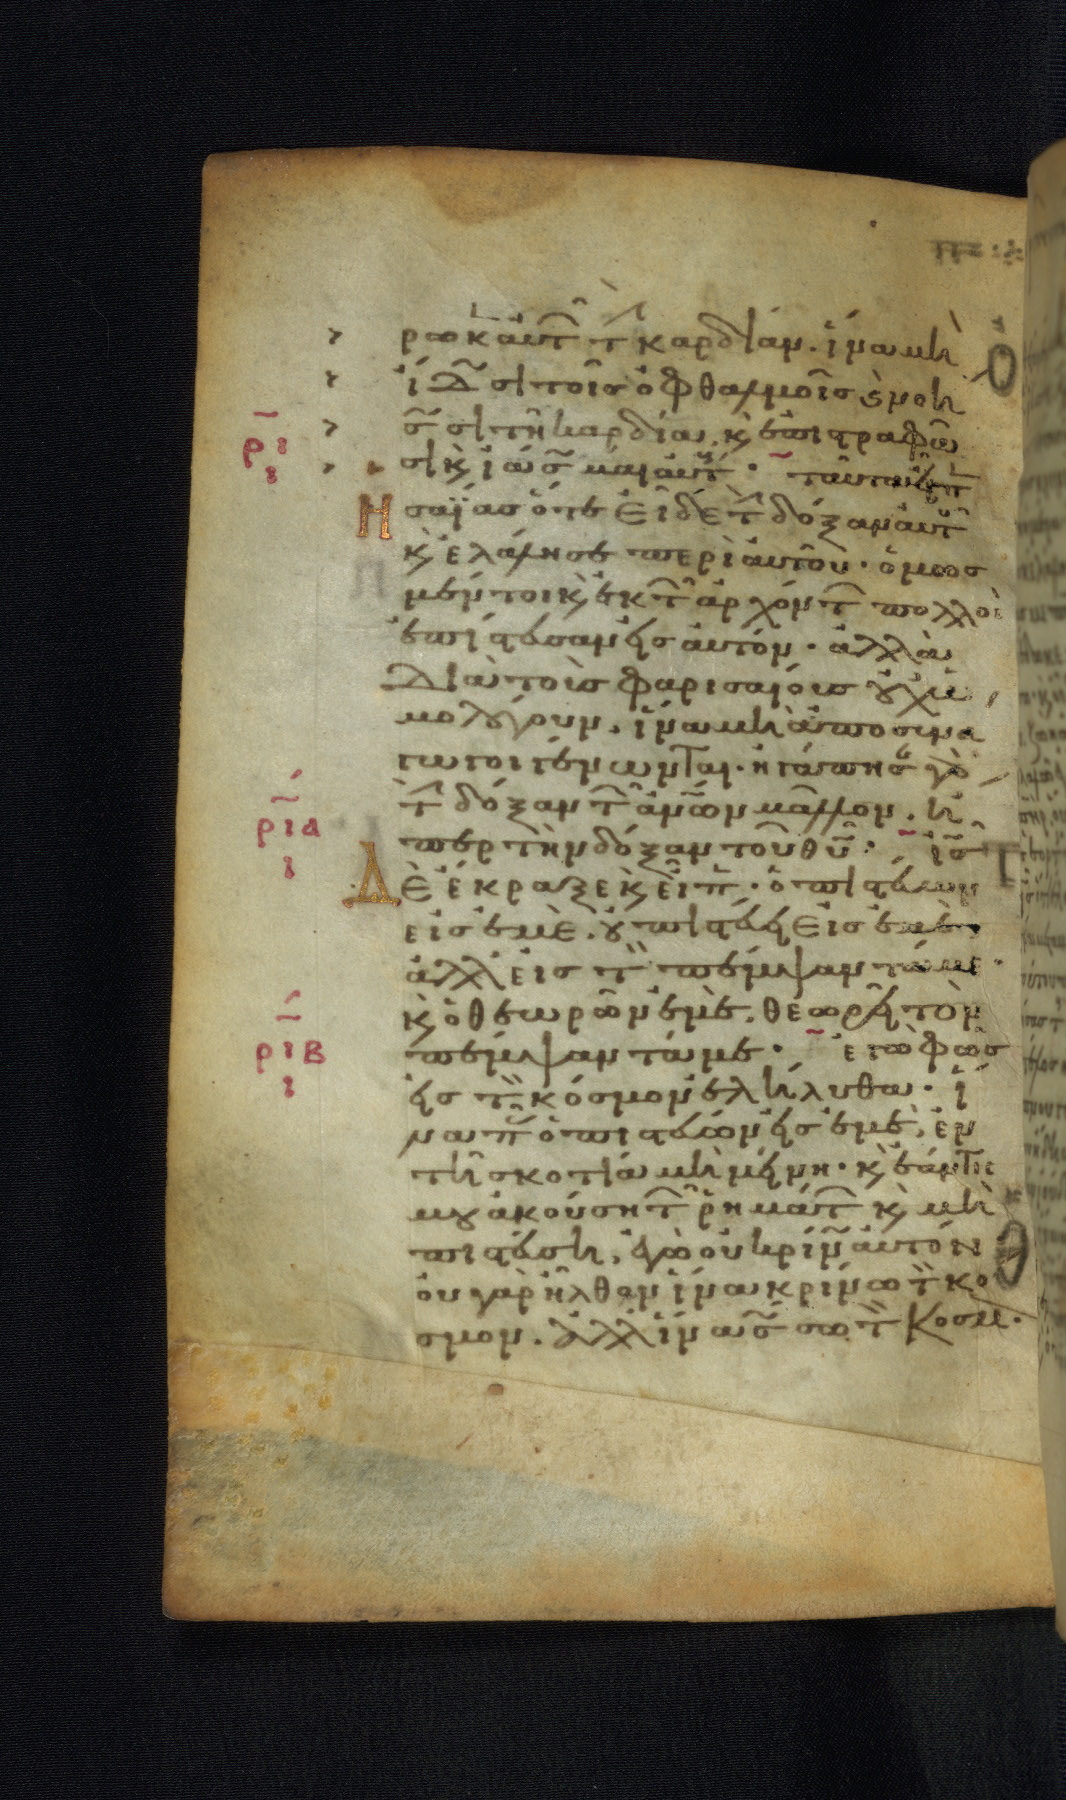 ρωκ αυτ τ καρδίαν. ἵνα μὴ
ἴδωσι τοῖς ὀφθαλμοῖς ἢ νοή
σωσι τῇ καρδίᾳ, κ ἐπιστραφῶ
ρι σι κ ἰάσ μαι αὐτ. ταῦτα εἶπ
Ησαΐας ὅτε εἶδε τ δόξαν αὐτ
κ ἐλάλησε περὶ αὐτοῦ. ὅμως
μέντοι κ ἐκ τ ἀρχόντ πολλοὶ
ἐπίστευσαν εἰς αὐτόν. ἀλλὰ
διὰ τοὶς φαρισαίοις οὐχ ὡ
μολόγουν, ἵνα μὴ ἀποσυνα
γωγοι γένωνται. ἠγάπησ γὰ
τ δόξαν τ ἀνων μᾶλλον, ἤ
ρια περ τὴν δόξαν τοῦ θυ. ις
Δὲ ἔκραξε κ εἶπ. ὁ πιστεύων
εἰς ἐμὲ, οὐ πιστεύει εἰς ἐμὲ
ἀλλ εἰς τ πέμψαντά με.
κ ὁ θεωρῶν ἐμὲ, θεωρεῖ τὸν
ριβ πέμψαντά με. ἐγὼ φῶς
εἰς τ κόσμον ἐλήλυθα. ἵ
να π ὁ πιστεύων εἰς ἐμὲ, ἐν
τῇ σκοτίᾳ μὴ μείνη. κ ἐάν τις
μου ἀκούση τ ῥημάτ κ μὴ
πιστεύση, ἐγὼ οὐ κρίν αὐτόν
οὐ γὰρ ἦλθον ἵνα κρίνω τ κό
σμον. ἀλλ ἵνα σωσ τ κοσμ.